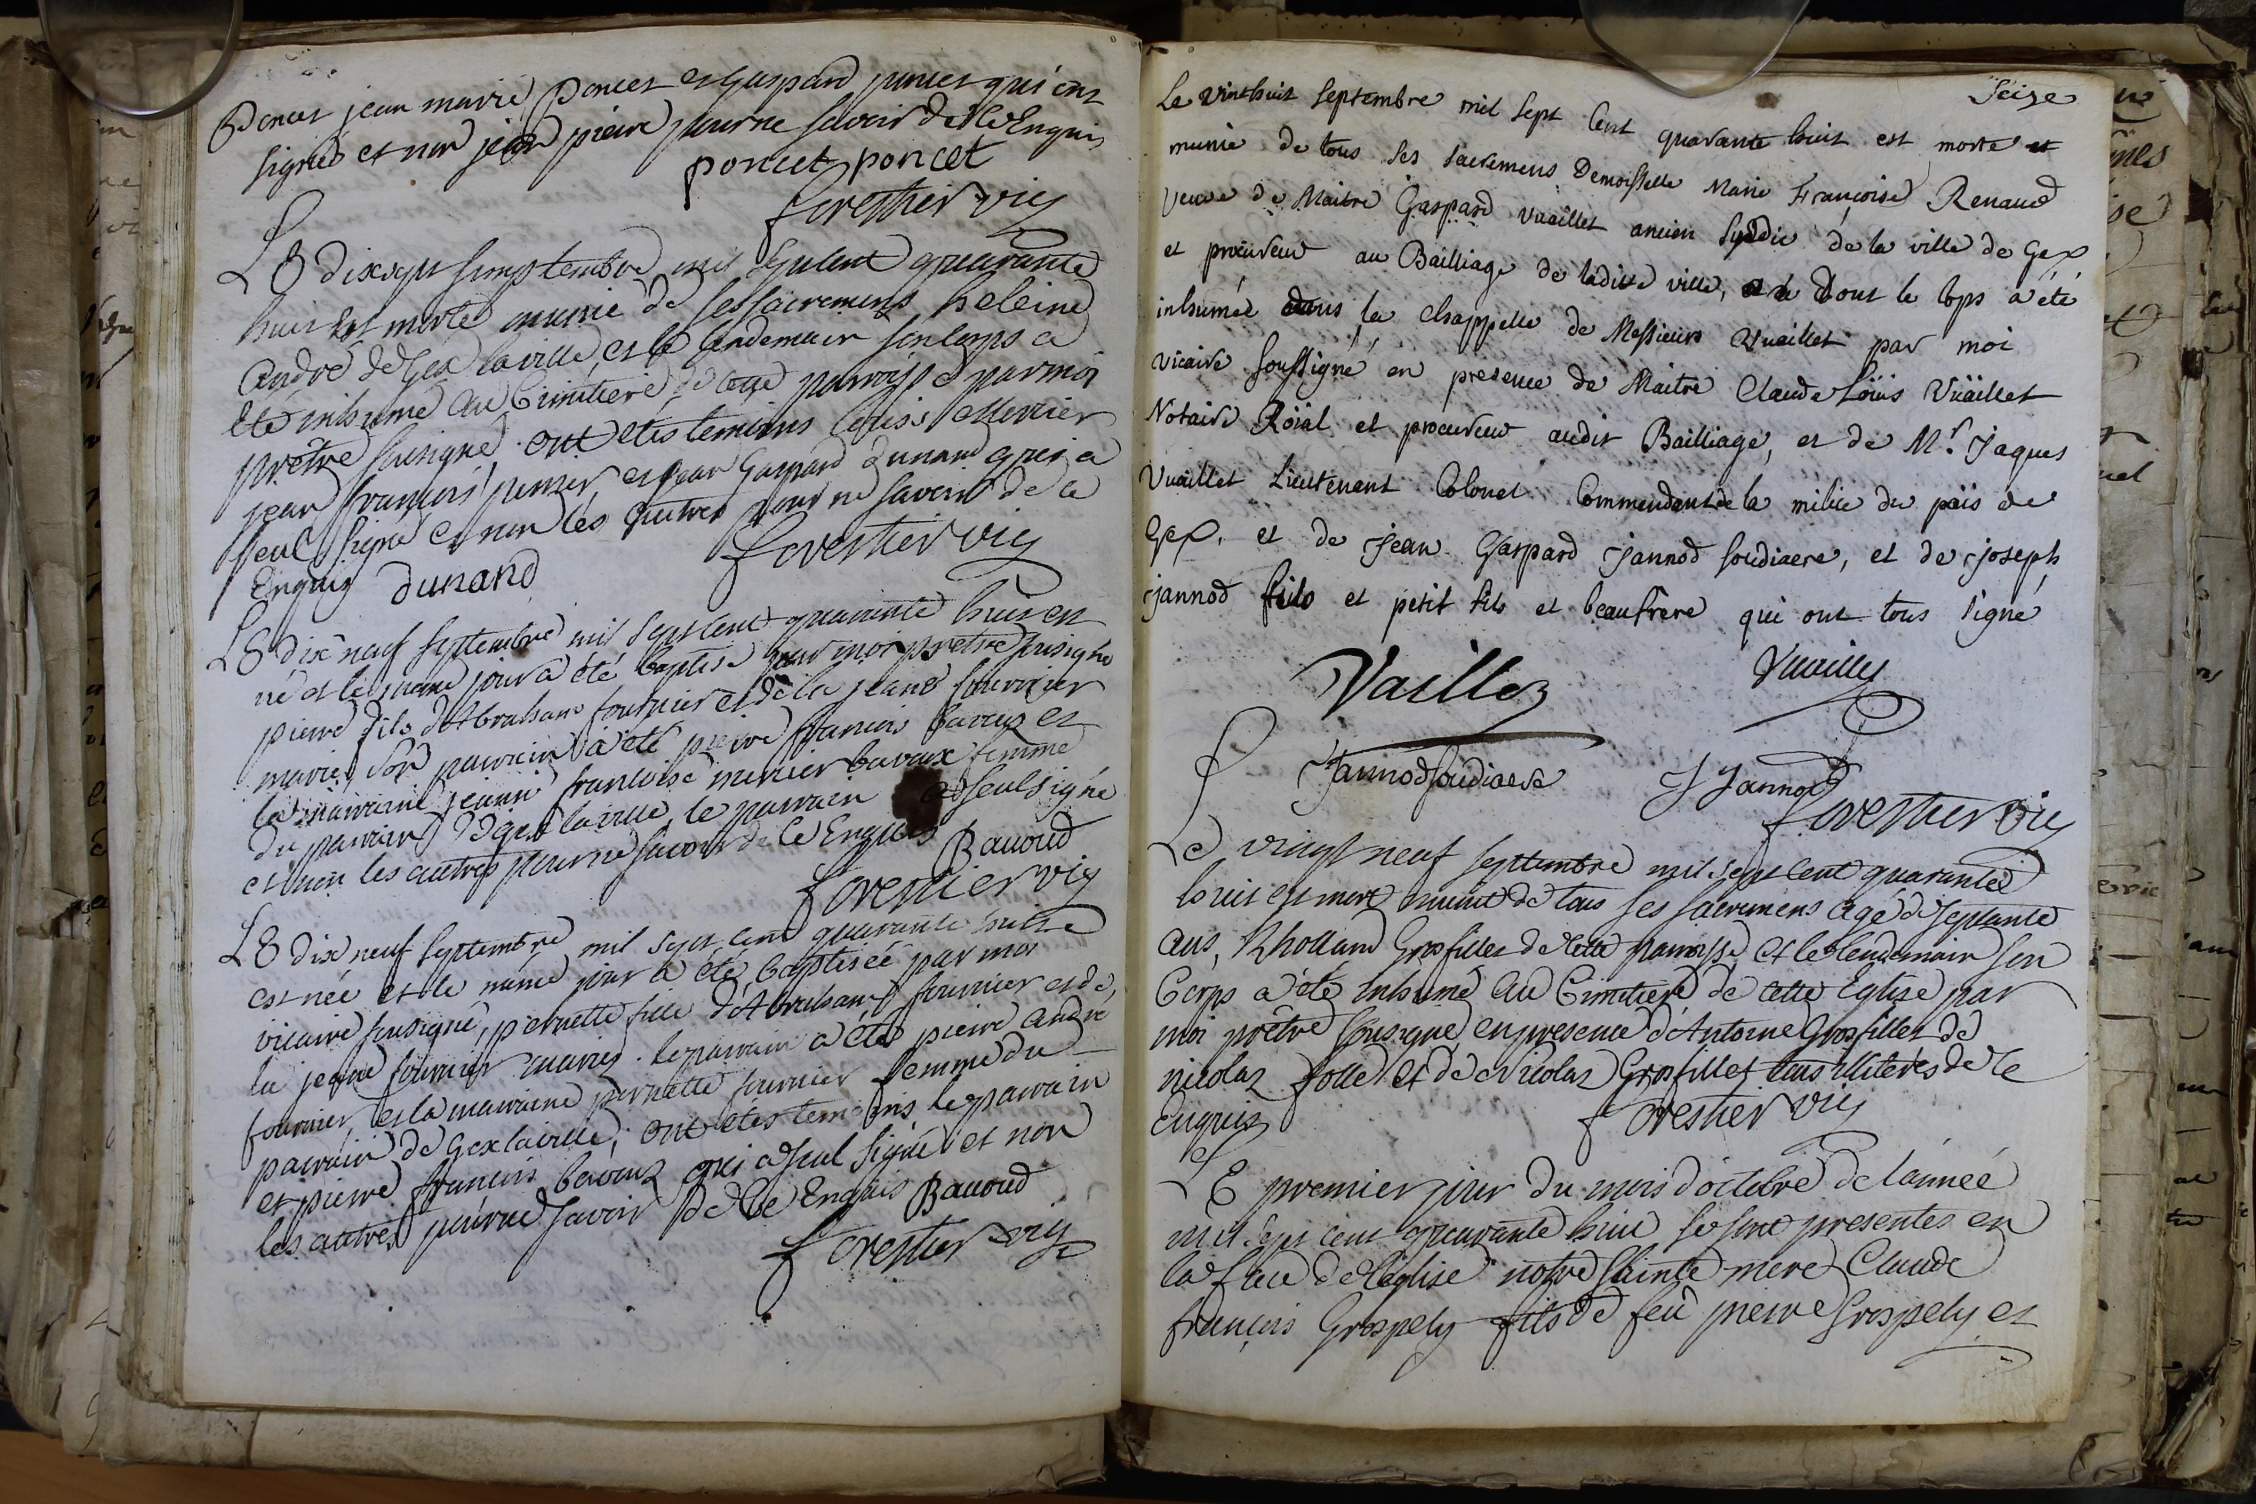 Poncet jean marie Poncet et Gaspard poncet qui ont
signés et non jean pierre pour ne savoir de ce Enquis
poncet poncet
forestier vic
LE dixsept semptembre mil septcent quarante
huit est morte munie de ses sacremens heleine
André de Gex la ville, et le lendemain son corps a
été inhumé au Cimitiere de cette parroisse par moi
prêtre sousigné ont étés temoins Louis Mercier
jean francois perrier, et jean Gaspard dunand qui a
seul signé et non les autres pour ne savoir de ce
Enquis dunand
forestier vic
LE dix neuf septembre mil sept cent quarante huit est
né et le meme jour a été baptisé par moi pretre sousigné
pierre fils d'Abraham fournier et de la jeane fournier
mariés, son parrain a été pierre francois bavouz et
la marraine jeanne francoise mercier bavoux femme
du parrain de gex la ville, le parrain a seul signé
et non les autres pour ne savoir de ce Enquis Bauoud
forestier vic
LE dix neuf septembre mil sept cent quarante huit
est née et le même jour a été baptisée par moi
vicaire sousigné, pernette fille d'Abraham fournier et de
la jeane fournier mariés. le parrain a été pierre andre
fournier, et la marraine pernette fournier femme du
parrain de Gex la ville; ont étés temoins le parrain
et pierre francois bavouz qui a seul signé et non
les autres pour ne savoir de ce Enquis Bauoud
forestier vic
Seize
Le vinthuit septembre mil sept cent quarante huit est morte et
munie de tous ses sacremens Demoisselle Marie Françoise Renaud
veuve de Maitre Gaspard Vuaillet ancien syndic de la ville de Gex
et procureur au Bailliage de ladite ville, dont le cops a été
inhumée dans la chappelle de Messieurs Vuaillet par moi
vicaire soussigné en presence de Maitre Claude Loüis Vüaillet
Notaire Roïal et procureur audit Bailliage, et de Mr. Jaques
Vuaillet Lieutenant Colonel Commendant de la milice du païs de
Gex. et de Jean Gaspard Jannod soudiacre, et de Joseph
Jannod fils et petit fils et beaufrère qui ont tous signé
Vaillez Vuaillet
Jannod soudiacre J Jannod
forestier vic
Le vingt neuf septembre mil sept cent quarante
huit est mort munit de tous ses sacremens agé de septante
ans, Rholland Grosfillez de cette parroisse et le lendemain son
Corps a été inhumé au Cimitiere de cette Eglise par
moi prêtre sousigné en presence d'Antoine Grosfillet de
nicolaz et de Nicolaz Grosfillet tous illiterés de ce
Enquis
forestier vic
LE premier jour du mois d'octobre de l'année
mil sept cent quarante huit se sont presentes en
la face de l'Eglise notre sainte mere Claude
françois Grospely fils de feu pierre Grospely et